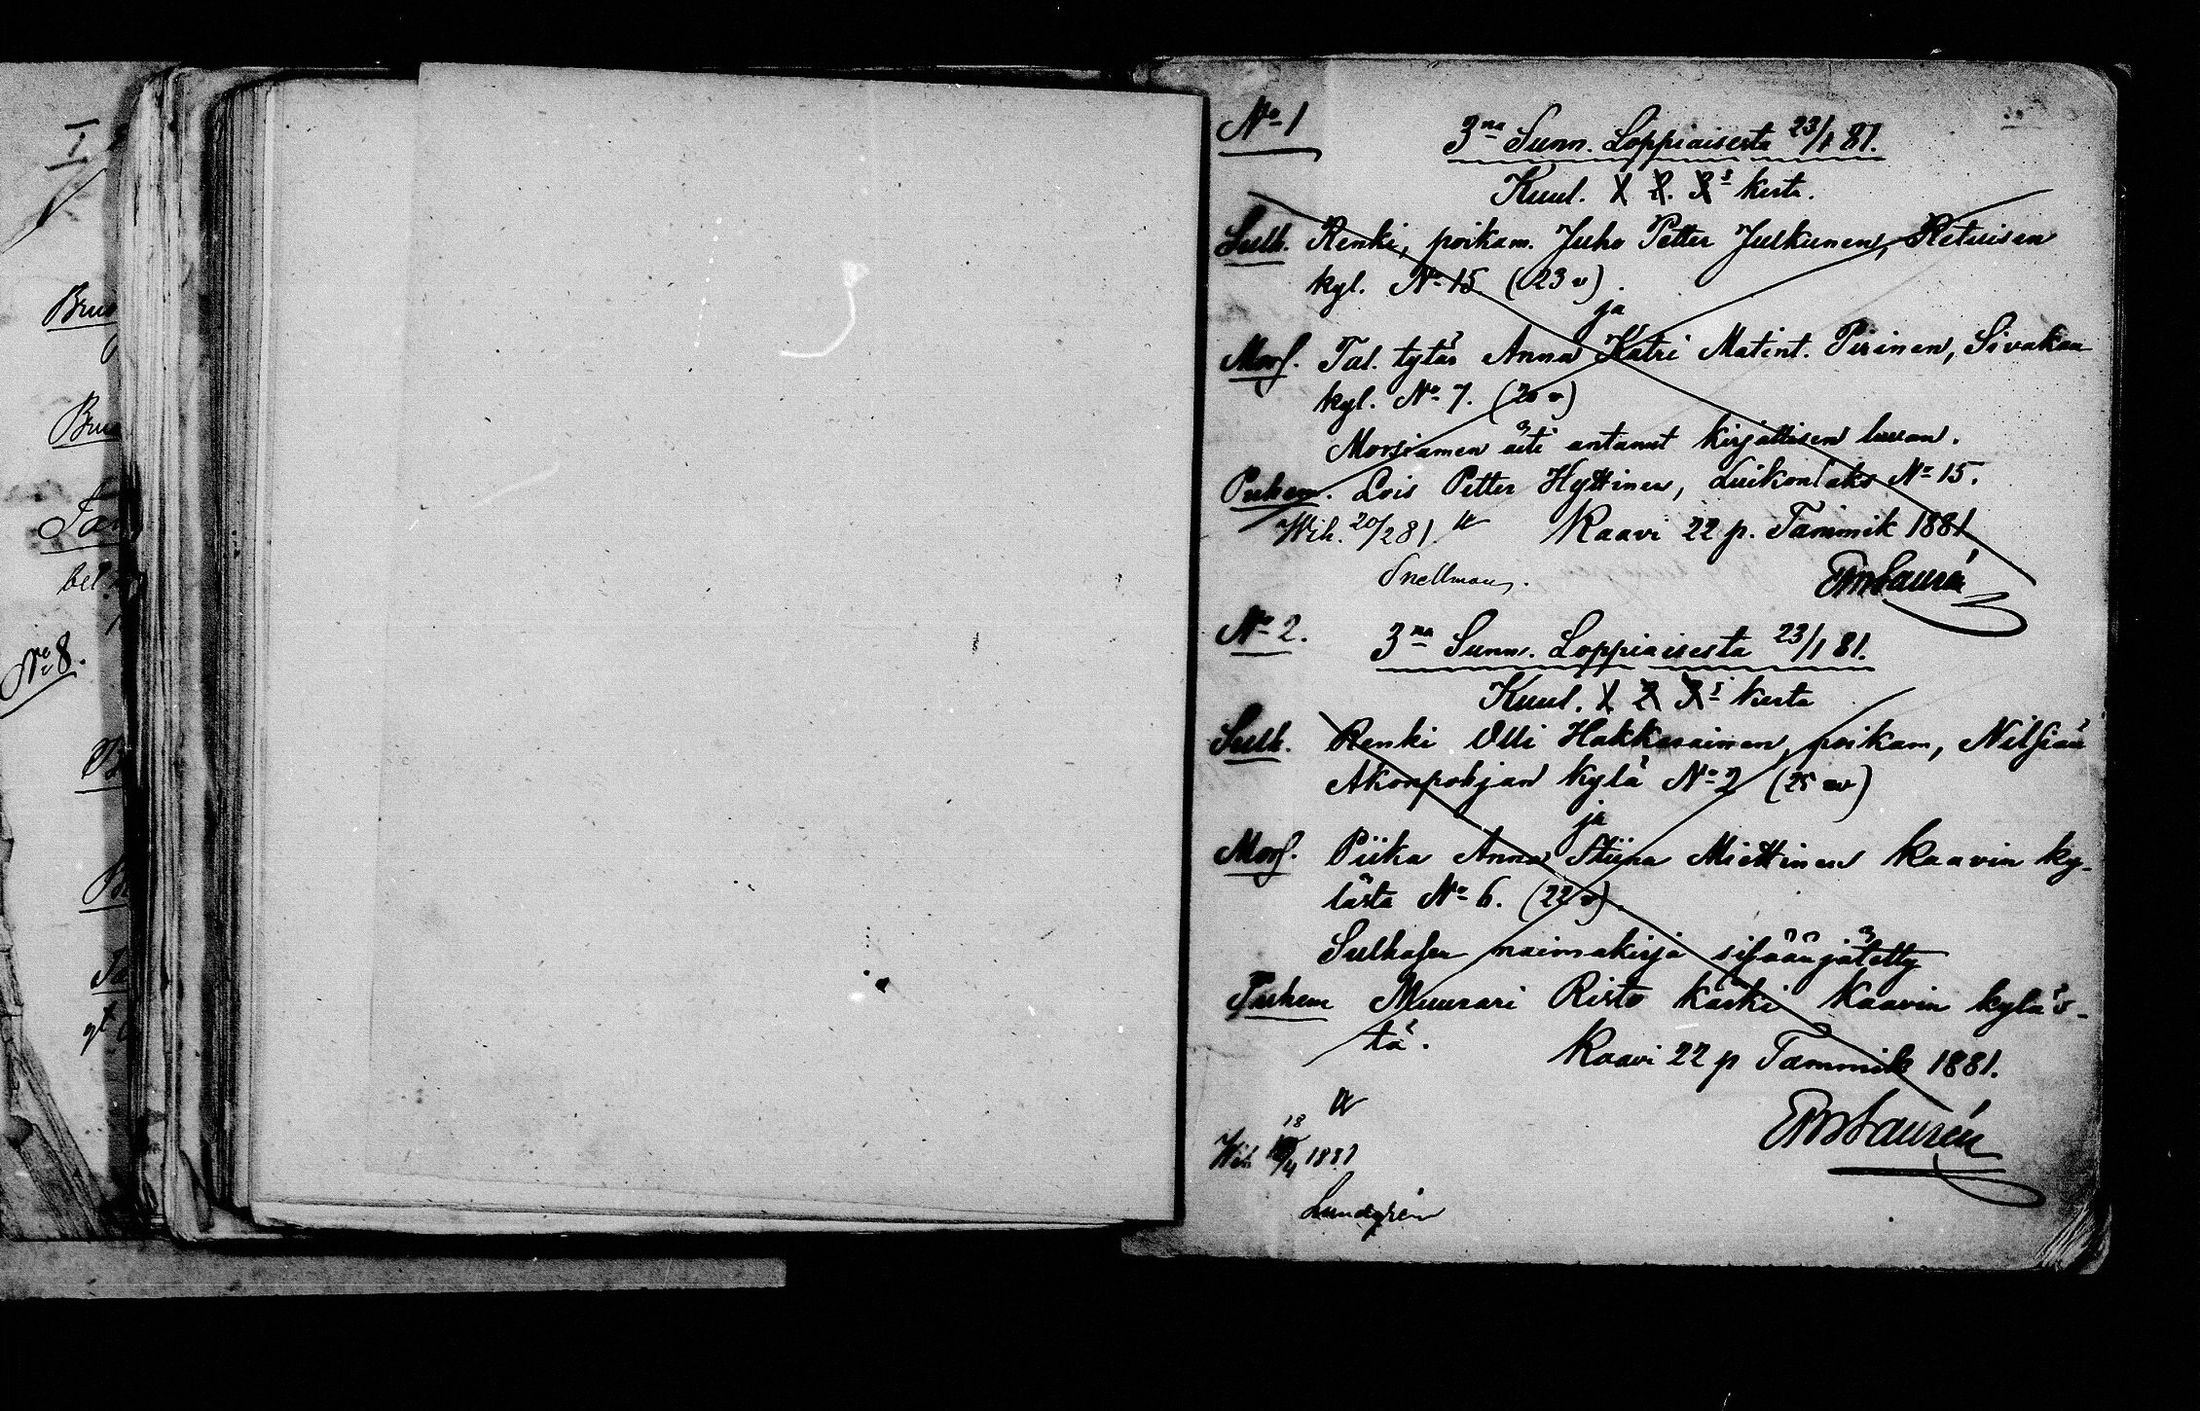 I
Bru
Bru
bel.
No 8.
No 1
3na Sunn. Loppiaisesta 23/1 81.
Kuul. 1 2. 3s kerta.
Sulh. Renki, poikam. Juho Petter Juskunen, Retuisen
kyl. No 15 (23 v).
ja
Morſ. Tal. tytär Anna Katri Matint. Pirinen, Sivakan
kyl. No 7. (20 v)
Morsiamen äiti antanut kirjallisen luvan.
Puhem. Lois Petter Hyttinen, Luikonlaks No 15.
Wih. 20/2 81 Kaavi 22 p. Tammik 1881
Snellman. Laurén
No 2. 3na Sunn. Loppiaisesta 23/1 81.
Kuul. 1 2 3s kerta
Sulh. Renki Olli Hakkarainen, poikam, Nilſiän
Akonpohjan kylä No 2 (25 v)
ja
Morſ. Piika Anna Stiina Miettinen Kaavin ky-
lästä No 6. (22 v).
Sulhaſen naimakirja siſään jätetty
Puhem Muurari Risto Käski Kaavin kyläs-
tä.
Kaavi 22 p Tammik 1881.
18
Wih /4 1881 Laurén
Lundgrén